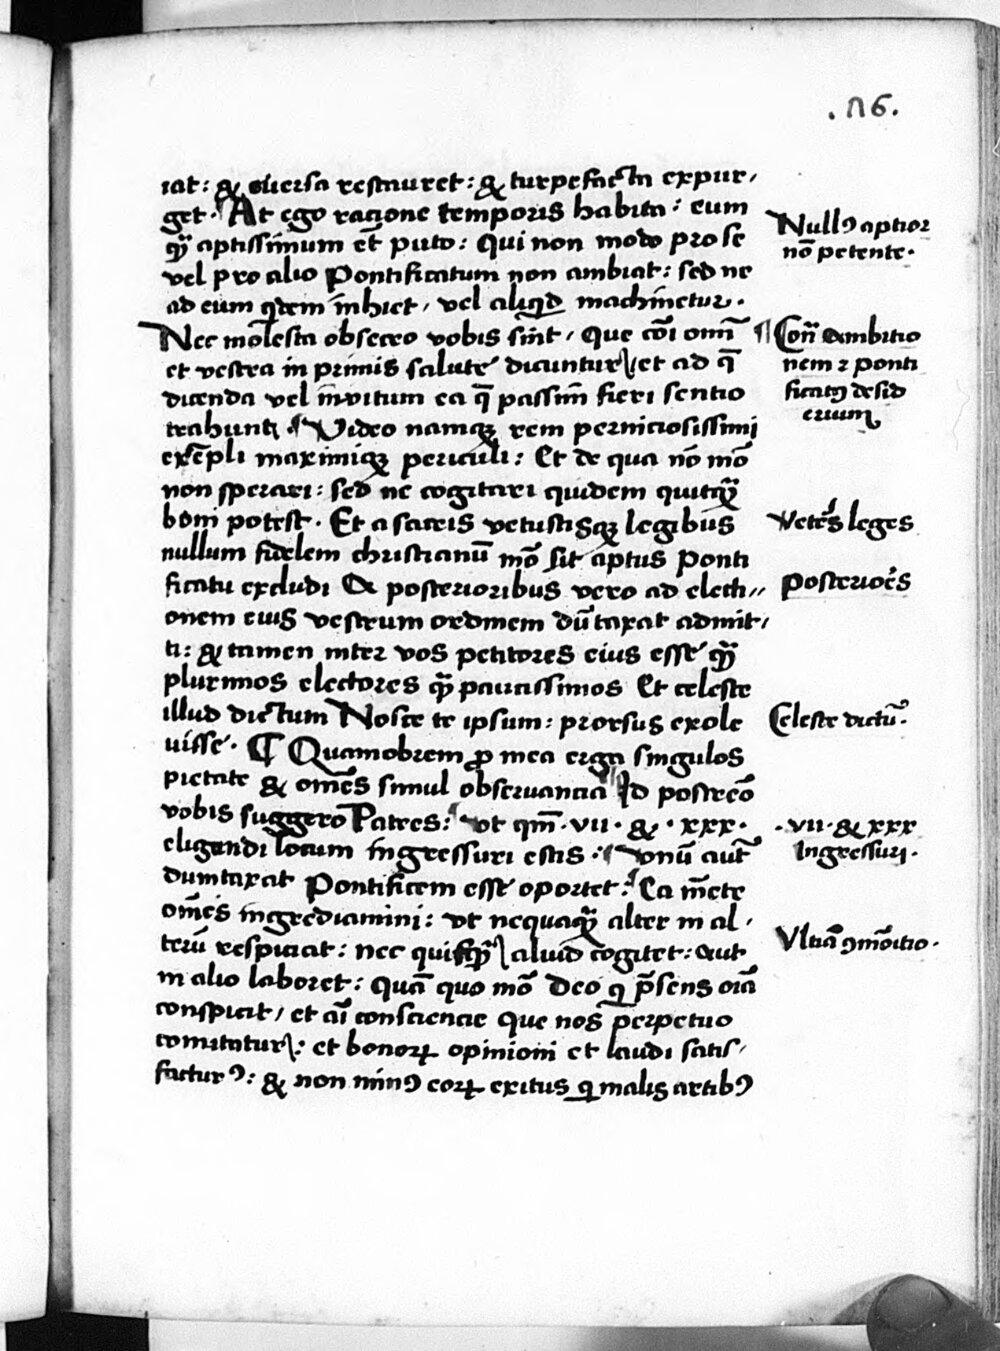 .116.
iat: & euersa restauret: & turpefacta expur,
get. At ego ratione temporis habita: eum
qꝫ aptissimum eē puto: Qui non modo pro se
vel pro alio Pontificatum non ambiat: sed ne
ad eum qdem inhiet, vel aliqd machinetur.
Nec molesta obsecro vobis sint, Que cōi omī
et vestra in primis salute dicuntur et ad q̄
dicenda vel invitum ea q̄ passim fieri sentio
trahunt Video namqꝫ rem perniciosissimi
exēpli maximiqꝫ periculi: Et de qua nō mō
non sperari: sed ne cogitari quidem quitqꝫ
boni potest. Et a sacris vetustisqꝫ legibus
nullum fidelem christianū mō sit aptus Ponti
ficatu excludi & posterioribus vero ad electi,,
onem eius vestrum ordinem dūtaxat admit,
ti: & tamen inter vos petitores eius esse qꝫ
plurimos electores qꝫ paucissimos Et celeste
illud dictum Nosce te ipsum: prorsus exole
uisse. ¶ Quamobrem ꝓ mea erga singulos
pietate & om̄es simul obseruancia Id postreō
vobis suggero Patres: vt qm̄ .vii. & .xxx.
eligendi locum ingressuri estis. vonū aut̄
dumtaxat Pontificem esse oportet: Ea m̄ete
om̄es ingrediamini: vt nequaqꝫ alter in al,
terū respiciat: nec quisqꝫ aliud cogitet: aut
in alio laboret: Quā quo mō Deo q p̄sens oīa
conspicit, et aī consciencie que nos perpetuo
comitatur: et bonoꝝ opinioni et laudi satis,
facturꝰ: & non minꝰ eoꝝ exitus q malis artibꝰ
Nullꝰ aptior
nō petente.
¶ Con̄ ambitio
nem ⁊ ponti
ficatꝰ desid
erium
Veteres leges
Posterioēs
Celeste dictū.
.vii. & xxx
Ingressuri.
Vltiā ꝯmōitio.